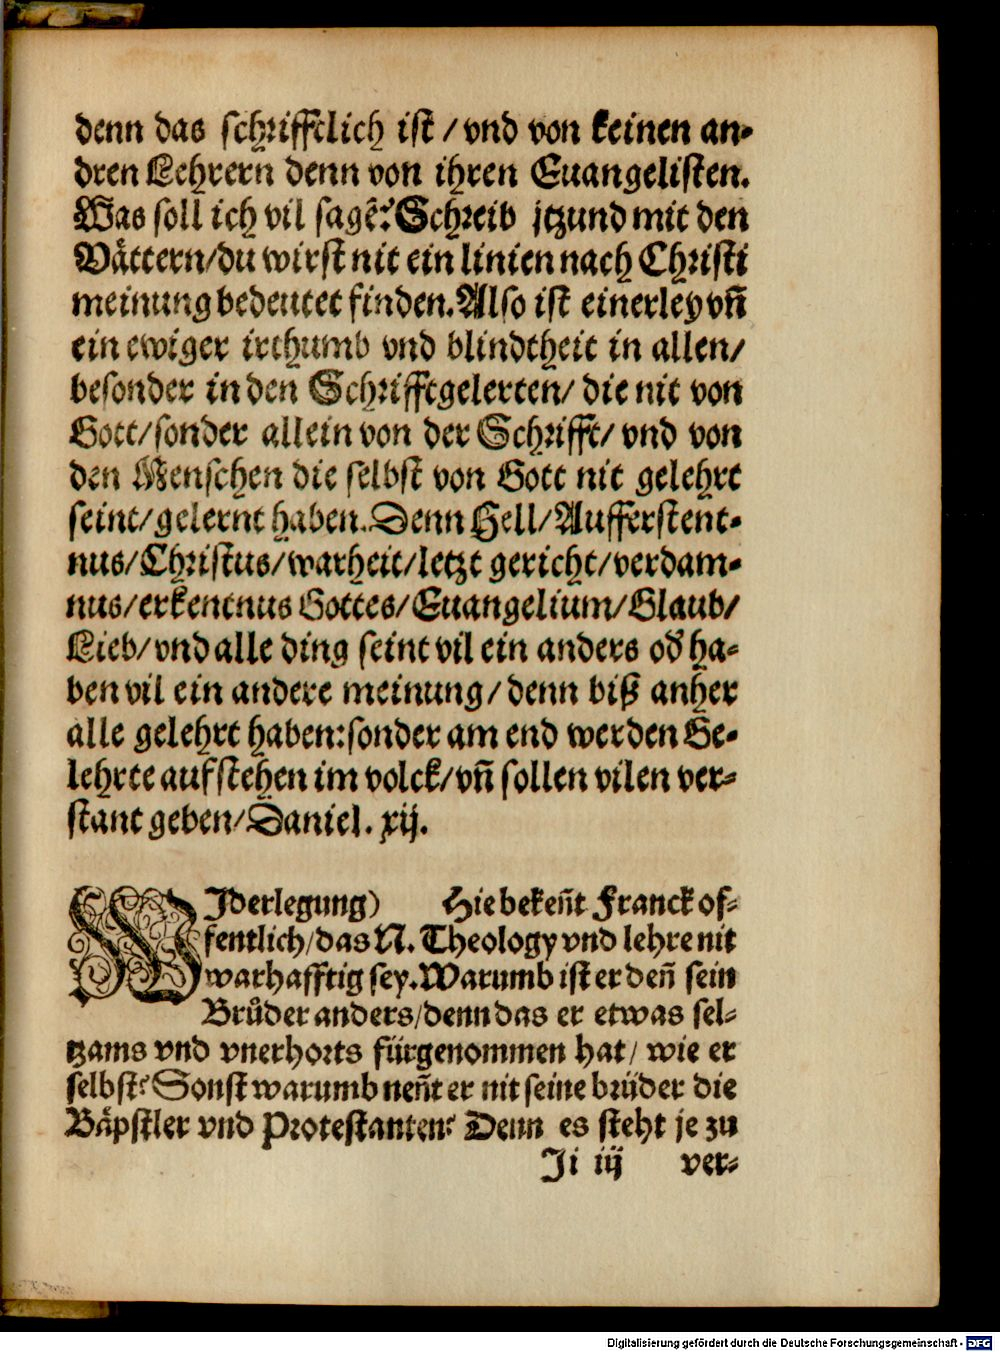 denn das schrifftlich ist / vnd von keinen an⸗
dren Lehrern denn von ihren Euangelisten.
Was soll ich vil sagẽ? Schreib jtzund mit den
Våttern/du wirst nit ein linien nach Christi
meinung bedeutet finden. Also ist einerley vñ
ein ewiger irthumb vnd blindtheit in allen/
besonder in den Schrifftgelerten/ die nit von
Gott/sonder allein von der Schrifft/ vnd von
den Menschen die selbst von Gott nit gelehrt
seint/gelernt haben. Denn Hell/Aufferstent⸗
nus/Christus/warheit/letzt gericht/verdam⸗
nus/erkentnus Gottes/Euangelium/Glaub/
Lieb/vnd alle ding seint vil ein anders od' ha⸗
ben vil ein andere meinung/denn biß anher
alle gelehrt haben:sonder am end werden Ge⸗
lehrte aufstehen im volck/vñ sollen vilen ver⸗
stant geben/Daniel. xij.
WJderlegung) Hie bekeñt Franck of⸗
fentlich/das N. Theology vnd lehre nit
warhafftig sey. Warumb ist er deñ sein
Brůder anders/denn das er etwas sel⸗
tzams vnd vnerhorts fürgenommen hat/ wie er
selbst? Sonst warumb neñt er nit seine brüder die
Båpstler vnd Protestanten? Denn es steht je zu
Ji iij ver⸗
Digitalisierung gefördert durch die Deutsche Forschungsgemeinschaft - DFG